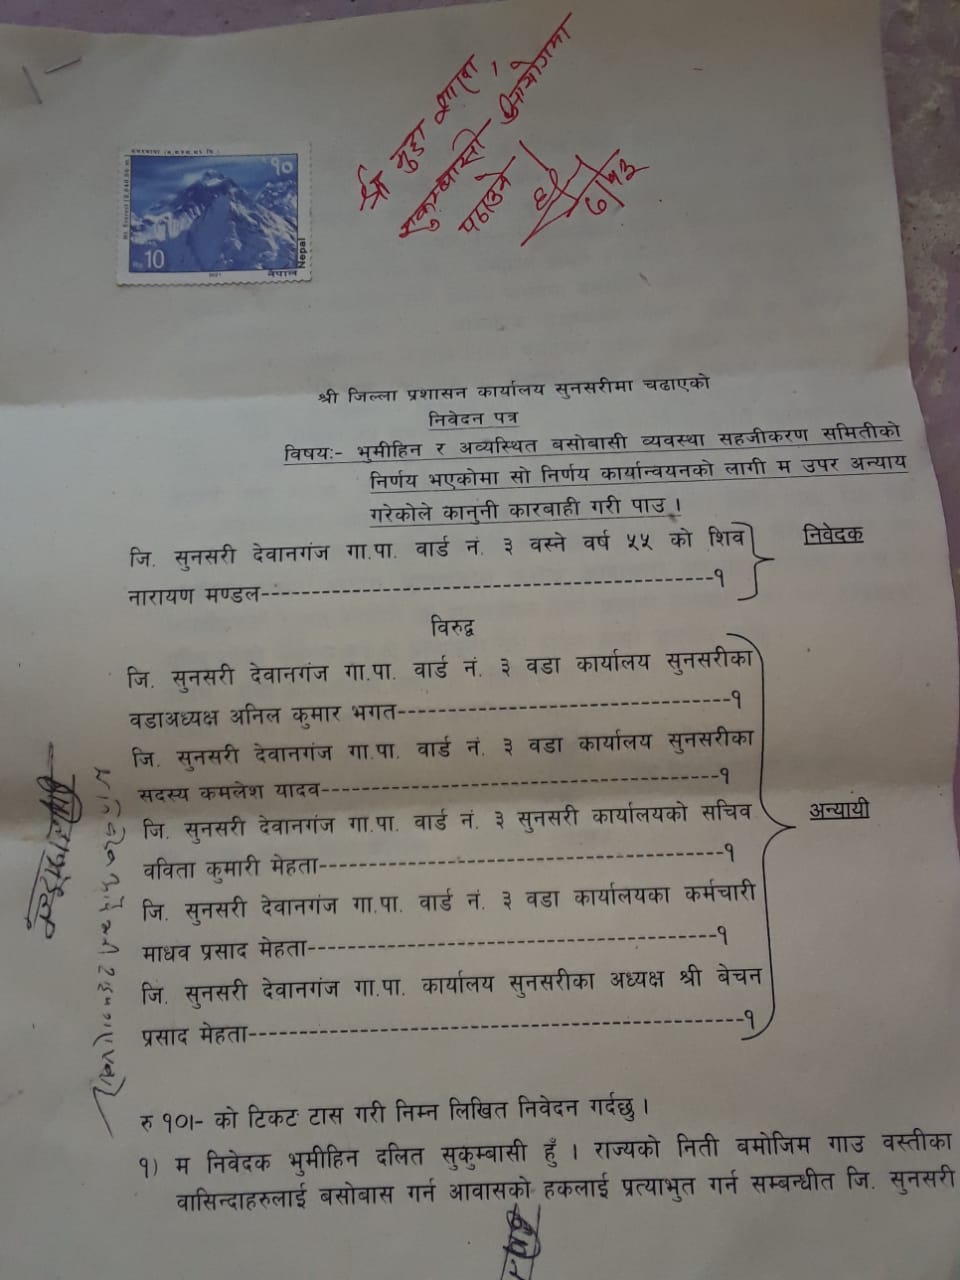 १०
Mt. Everest (8,848.86 m.)
Rs. 10
2021
नेपाल Nepal
श्री मुद्दा शाखा,
सुकुम्बासी आयोगमा
पठाउने ।
श्री जिल्ला प्रशासन कार्यालय सुनसरीमा चढाएको
निवेदन पत्र
विषयः- भुमीहिन र अव्यस्थित बसोबासी व्यवस्था सहजीकरण समितीको
निर्णय भएकोमा सो निर्णय कार्यान्वयनको लागी म उपर अन्याय
गरेकोले कानुनी कारबाही गरी पाउ ।
जि. सुनसरी देवानगंज गा.पा. वार्ड नं. ३ वस्ने वर्ष ५५ को शिव
नारायण मण्डल--------------------------------------------१
निवेदक
विरुद्व
जि. सुनसरी देवानगंज गा.पा. वार्ड नं. ३ वडा कार्यालय सुनसरीका
वडाअध्यक्ष अनिल कुमार भगत--------------------------------१
जि. सुनसरी देवानगंज गा.पा. वार्ड नं. ३ वडा कार्यालय सुनसरीका
सदस्य कमलेश यादव---------------------------------------१
जि. सुनसरी देवानगंज गा.पा. वार्ड नं. ३ सुनसरी कार्यालयको सचिव
वविता कुमारी मेहता----------------------------------------१
अन्यायी
जि. सुनसरी देवानगंज गा.पा. वार्ड नं. ३ वडा कार्यालयका कर्मचारी
माधव प्रसाद मेहता----------------------------------------१
जि. सुनसरी देवानगंज गा.पा. कार्यालय सुनसरीका अध्यक्ष श्री बेचन
प्रसाद मेहता-----------------------------------------------१
रु १०।- को टिकट टास गरी निम्न लिखित निवेदन गर्दछु ।
१) म निवेदक भुमीहिन दलित सुकुम्बासी हुँ । राज्यको निती बमोजिम गाउ वस्तीका
वासिन्दाहरुलाई बसोबास गर्न आवासको हकलाई प्रत्याभुत गर्न सम्बन्धीत जि. सुनसरी